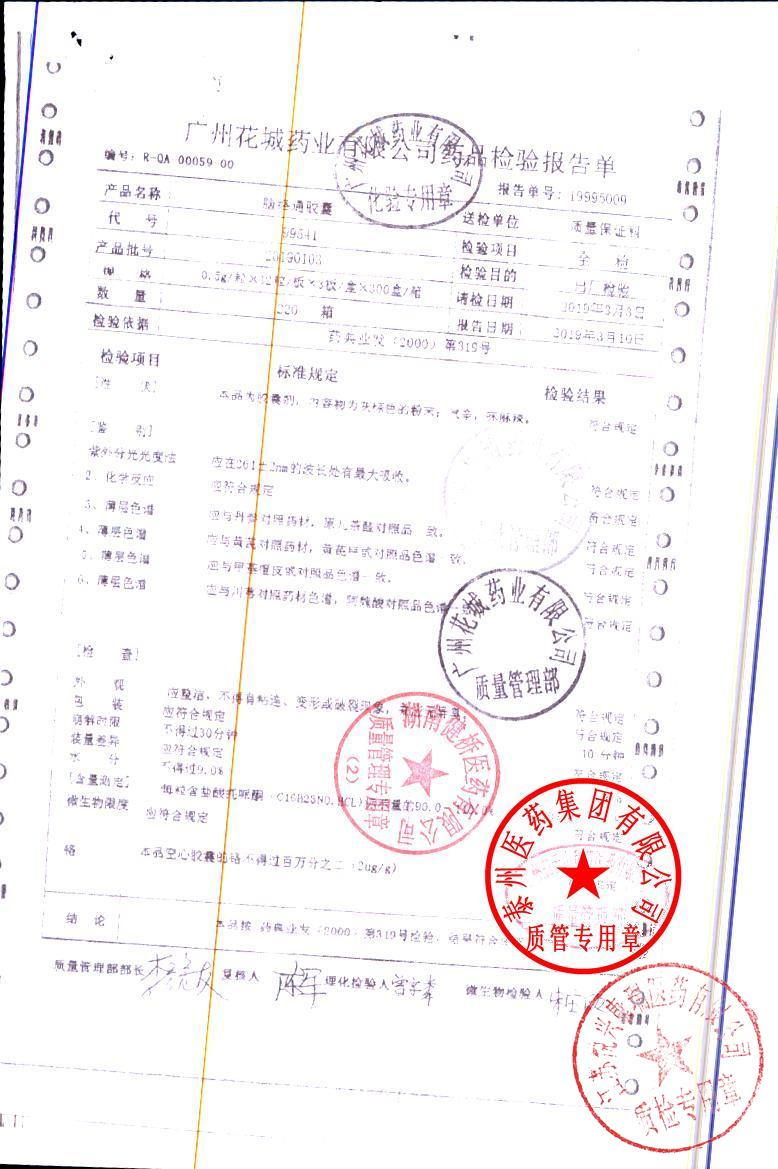 广州花城药业有限公司药品检验报告单
编号：R-QA 00059 00
报告单号：19995009
产品名称 脑络通胶囊 送检单位 质量保证科
代 号 99541 检验项目 全 检
产品批号 20190103 检验目的 出厂检验
规 格 0.5g/粒×12粒/板×3板/盒×300盒/箱 请检日期 2019年3月3日
数 量 220 箱 报告日期 2019年3月10日
检验依据 药典业发（2000）第319号
检验项目 标准规定 检验结果
[性 状] 本品为胶囊剂，内容物为灰棕色的粉末；气辛，味麻辣。 符合规定
[鉴 别]
紫外分光光度法 应在261±2nm的波长处有最大吸收。 符合规定
2、化学反应 应符合规定 符合规定
3、薄层色谱 应与丹参对照药材，原儿茶醛对照品一致。 符合规定
4、薄层色谱 应与黄芪对照药材，黄芪甲甙对照品色谱一致。 符合规定
5、薄层色谱 应与甲基橙皮甙对照品色谱一致。 符合规定
6、薄层色谱 应与川芎对照药材色谱，阿魏酸对照品色谱 符合规定
[检 查]
外 观 应整洁，不得有粘连、变形或破裂现象，并应无异臭。 符合规定
包 装 应符合规定 符合规定
崩解时限 不得过30分钟 10分钟
装量差异 应符合规定 符合规定
水 分 不得过9.0%
[含量测定] 每粒含盐酸托哌酮（C16H23NO.HCL）
微生物限度 应符合规定 符合规定
铬 本品空心胶囊的铬不得过百万分之二（2ug/g）
结 论 本品按 药典业发（2000）第319号检验，结果符合
质量管理部部长 复核人 理化检验人 微生物检验人
广州花城药业有限公司
化验专用章
广州花城药业有限公司
质量管理部
湖南健桥医药有限公司
质量管理专用章
（2）
泰州医药集团有限公司
质管专用章
质检专用章